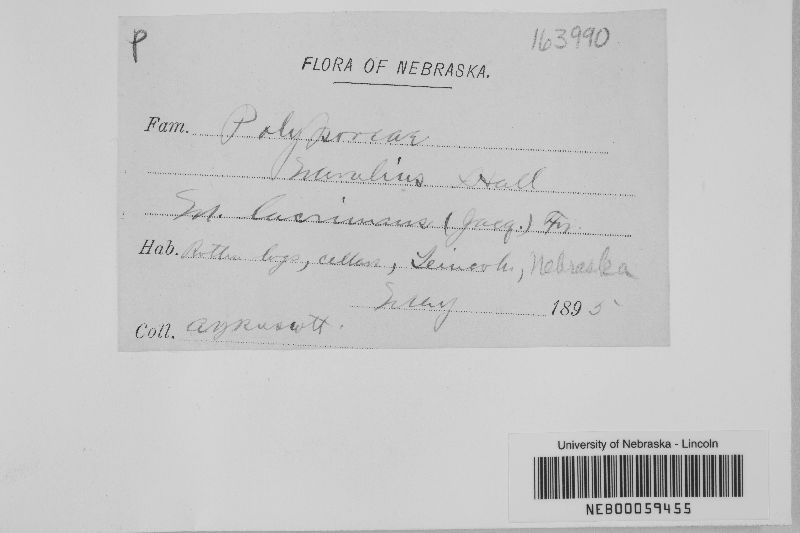 P
163990
FLORA OF NEBRASKA.
Fam. Polyporeae
Merulius Hall
M. lacrimans (Jacq.) Fr.
Hab. Rotten logs, cellar, Lincoln, Nebraska
May 1895
Coll.
University of Nebraska - Lincoln
NEB00059455